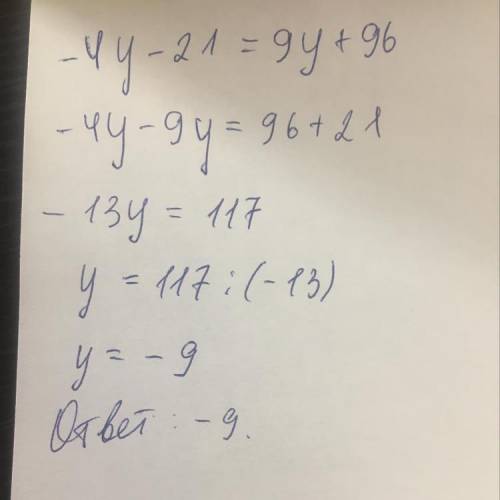 -4y - 21 = 9y + 96
-4y - 9y = 96 + 21
- 13y = 117
y = 117 : (-13)
y = - 9
Ответ : - 9.